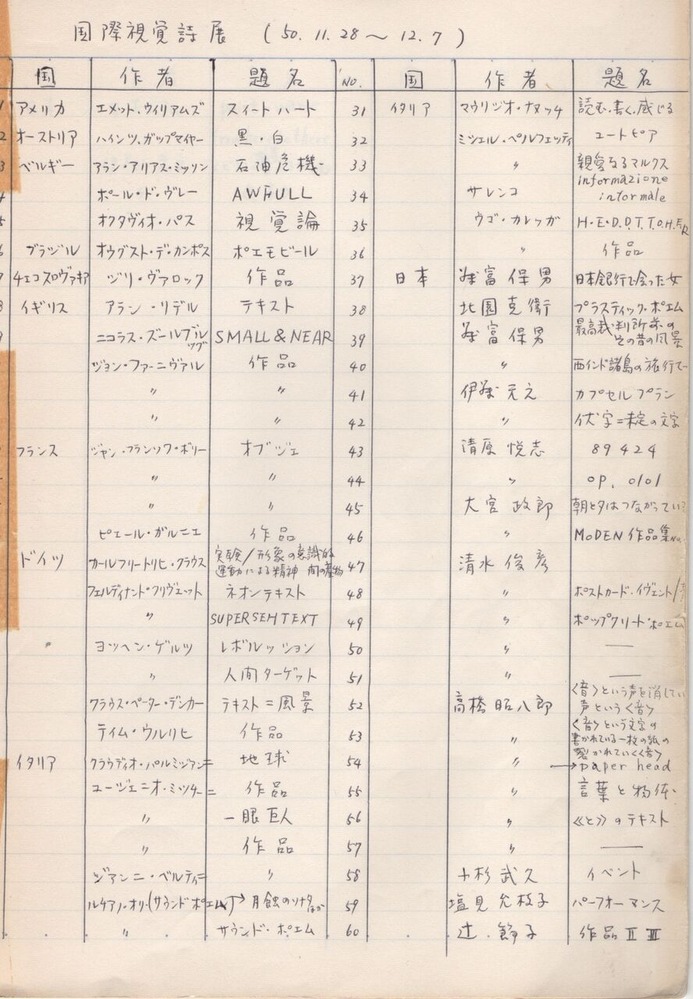 国際視覚詩展 (50.11.28～12.7)
国 作者 題名 NO. 国 作者 題名
アメリカ エメット・ウィリアムズ スィートハート 31 イタリア マウリジオ・ナヌッチ 読む・書く・感じる
オーストリア ハインツ・ガップマイヤー 黒・白 32 ミッシェル・ペルフェッティ ユートピア
ベルギー アラン・アリアス・ミッソン 石油危機 33 〃 親愛なるマルクス
ポール・ド・ヴレー AWFULL 34 サレンコ informazione informale
オクタヴィオ・パス 視覚論 35 ウゴ・カレッガ H・E・D.D.T.T.O.H.E.R
ブラジル オウグスト・デ・カンポス ポエモビール 36 〃 作品
チェコスロヴァキア ジリ・ヴァロック 作品 37 日本 富保男 日本銀行で会った女
イギリス アラン・リデル テキスト 38 北園克衛 プラスティック・ポエム
ニコラス・ズールブルッグ SMALL & NEAR 39 富保男 最高裁判所前の その昔の風景
ジョン・ファーニヴァル 作品 40 〃 西インド諸島の旅行で
〃 〃 41 伊 元之 カプセルプラン
〃 〃 42 〃 伏字=未定の文字
フランス ジャン・フランソワ・ボリー オブジェ 43 清原悦志 89424
〃 〃 44 〃 OP. 0101
〃 〃 45 大宮政郎 朝と夕はつながってい
ピエール・ガルニエ 作品 46 〃 MODEN 作品集
ドイツ カールフリートリヒ・クラウス 実験/形象の意識的 運動による精神 間の産物 47 清水俊彦
フェルディナント・クリヴェット ネオンテキスト 48 〃 ポストカード・イヴェント/
〃 SUPERSEHTEXT 49 〃 ポップクリート・ポエム
ヨッヘン・ゲルツ レボルッション 50 〃 ―
〃 人間ターゲット 51 〃 ―
クラウス・ペーター・デンカー テキスト=風景 52 高橋昭八郎 〈音〉という声を消してい 声という〈音〉
ティム・ウルリヒ 作品 53 〃 〈音〉という文字の 書かれている一枚の紙の 裂かれていく〈音〉
イタリア クラウディオ・パルミジアーニ 地球 54 〃 →paper head
ユージェニオ・ミッチーニ 作品 55 〃 言葉と物体
〃 一眼巨人 56 〃 《と》のテキスト
〃 作品 57 〃 ―
ジアンニ・ベルティーニ 〃 58 小杉武久 イベント
ルチアノ・オリ(サウンドポエム)→ 月蝕のソナタ ほか 59 塩見允枝子 パーフォーマンス
〃 サウンド・ポエム 60 辻 節子 作品 II III